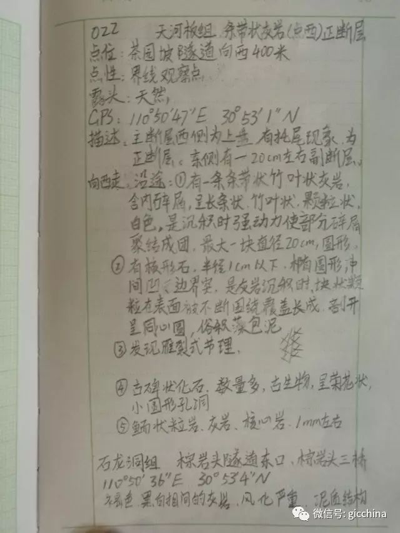 022 天河板组 条带状灰岩(点西)正断层
点位:茶园坡隧道向西400米
点性:界线观察点
露头:天然
GPS: 110°50'47"E 30°53'1"N
描述:主断层西侧为上盘,有拖尾现象,为
正断层。东侧有一20cm左右副断层。
向西走,沿途:①有一条条带状竹叶状灰岩,
含内碎屑,呈长条状、竹叶状、颗粒状,
白色,是沉积时强动力使部分碎屑
聚结成团,最大一块直径20cm,圆形。
②有板形石,半径1cm以下,椭圆形,中
间凹,边,是灰岩沉积时,块状颗
粒在表面被不断围绕覆盖长成,剖开
呈同心圆,俗称藻包泥
③发现雁裂式节理。
④古碎状化石,数量多,古生物,呈菊花状,
小圆形孔洞
⑤鲕状粒岩、灰岩、核心岩,1mm左右
石龙洞组 棕岩头隧道东口,棕岩头三桥
110°50'36"E 30°53'4"N
褐色,黑白相间的灰岩,风化严重,泥质结构
微信号: gicchina